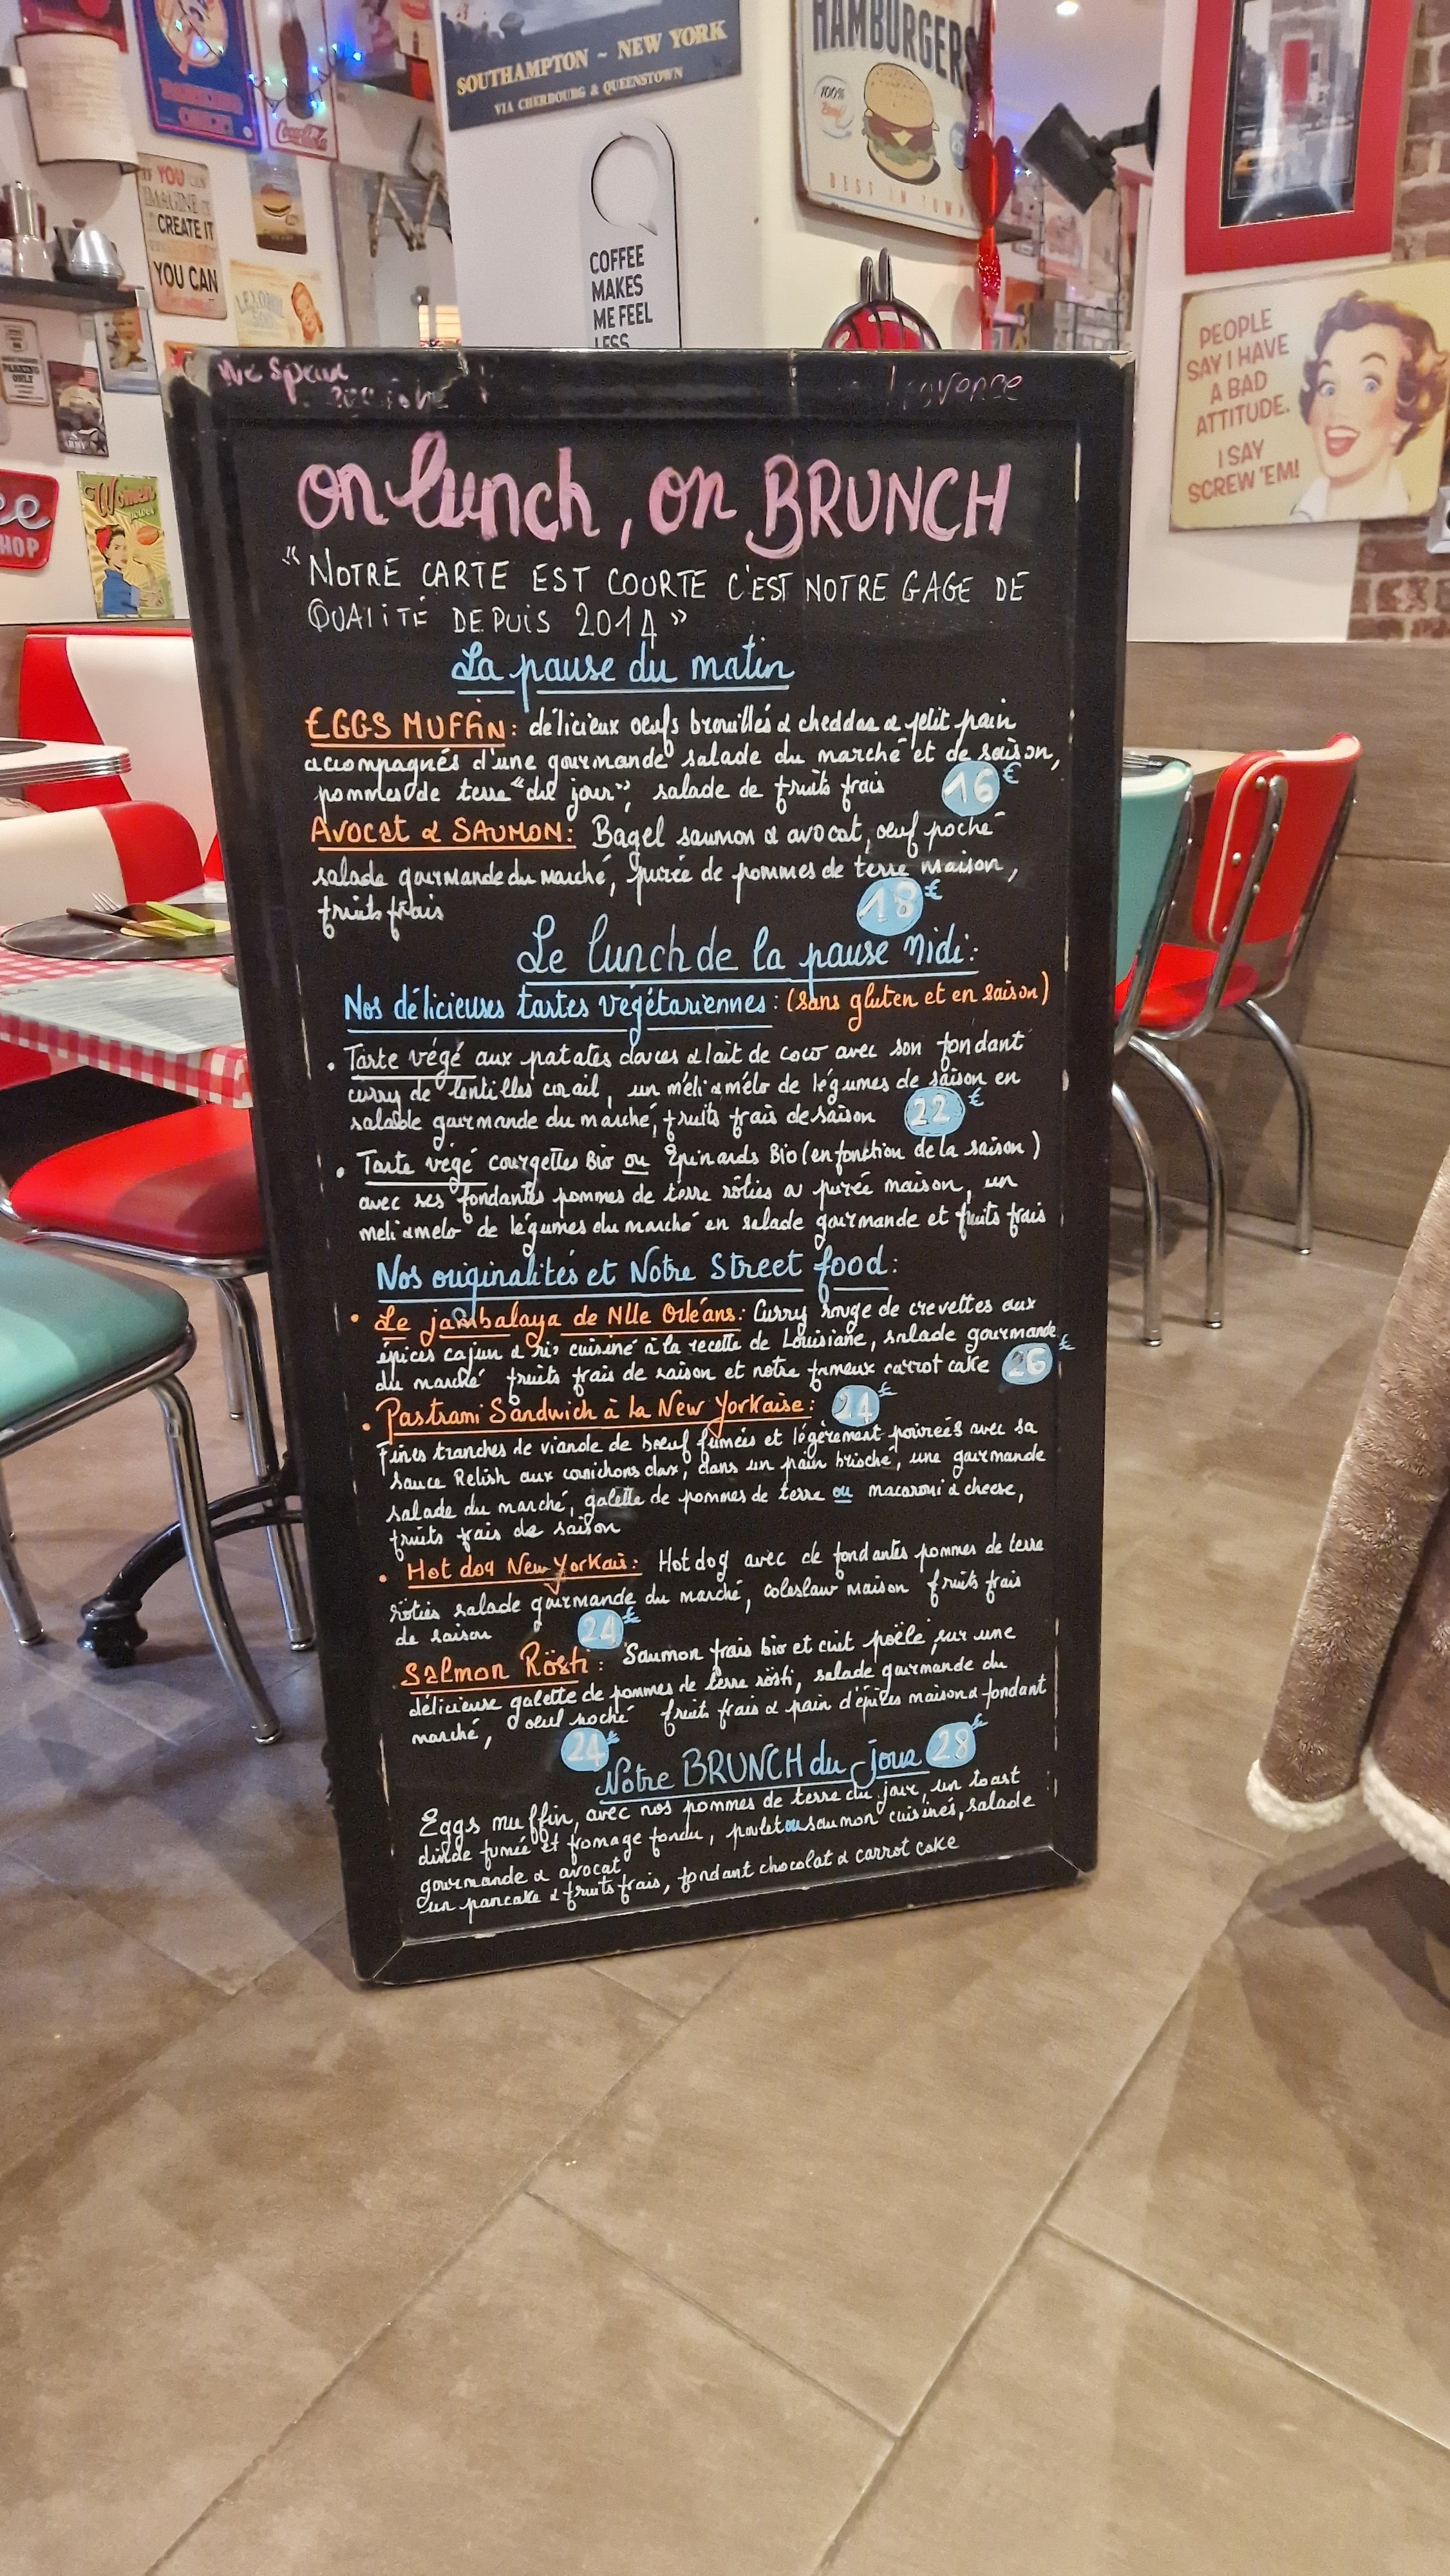 SOUTHAMPTON ~ NEW YORK
VIA CHERBOURG & QUEENSTOWN
HAMBURGERS
100%
BEST IN TOWN
Coca-Cola
YOU CAN
IMAGINE
CREATE IT
YOU CAN
COFFEE
MAKES
ME FEEL
LESS
PARKING
ONLY
ARMY
Women
power
ee
HOP
PEOPLE
SAY I HAVE
A BAD
ATTITUDE.
I SAY
SCREW 'EM!
We Speak
on lunch, on BRUNCH
"NOTRE CARTE EST COURTE C'EST NOTRE GAGE DE
QUALITÉ DEPUIS 2014"
La pause du matin
EGGS MUFFIN: délicieux oeufs brouillés & cheddar & petit pain
accompagnés d'une gourmande salade du marché et de saison,
pommes de terre "du jour", salade de fruits frais 16€
AVOCAT & SAUMON: Bagel saumon & avocat, oeuf poché
salade gourmande du marché, purée de pommes de terre maison,
fruits frais 18€
Le lunch de la pause midi:
Nos délicieuses tartes végétariennes: (sans gluten et en saison)
• Tarte végé aux patates douces & lait de coco avec son fondant
curry de lentilles corail, un méli & mélo de légumes de saison en
salade gourmande du marché, fruits frais de saison 22€
• Tarte végé courgettes Bio ou Epinards Bio (en fonction de la saison)
avec ses fondantes pommes de terre rôties ou purée maison, un
meli & melo de légumes du marché en salade gourmande et fruits frais
Nos originalités et Notre Street food:
• Le jambalaya de Nlle Orléans: Curry rouge de crevettes aux
épices cajun & riz cuisiné à la recette de Louisiane, salade gourmande
du marché fruits frais de saison et notre fameux carrot cake 26€
• Pastrami Sandwich à la New Yorkaise: 24€
Fines tranches de viande de boeuf fumées et légèrement poivrées avec sa
sauce Relish aux cornichons doux, dans un pain brioché, une gourmande
salade du marché, galette de pommes de terre ou macaroni & cheese,
fruits frais de saison
• Hot dog New Yorkais: Hot dog avec de fondantes pommes de terre
rôties salade gourmande du marché, coleslaw maison fruits frais
de saison 24€
Salmon Rösti: Saumon frais bio et cuit poëlé sur une
délicieuse galette de pommes de terre rösti, salade gourmande du
marché, oeuf poché fruits frais & pain d'épices maison & fondant
24€
Notre BRUNCH du jour 28€
Eggs muffin, avec nos pommes de terre du jour, un toast
dinde fumée et fromage fondu, poulet ou saumon cuisinés, salade
gourmande & avocat
un pancake & fruits frais, fondant chocolat & carrot cake